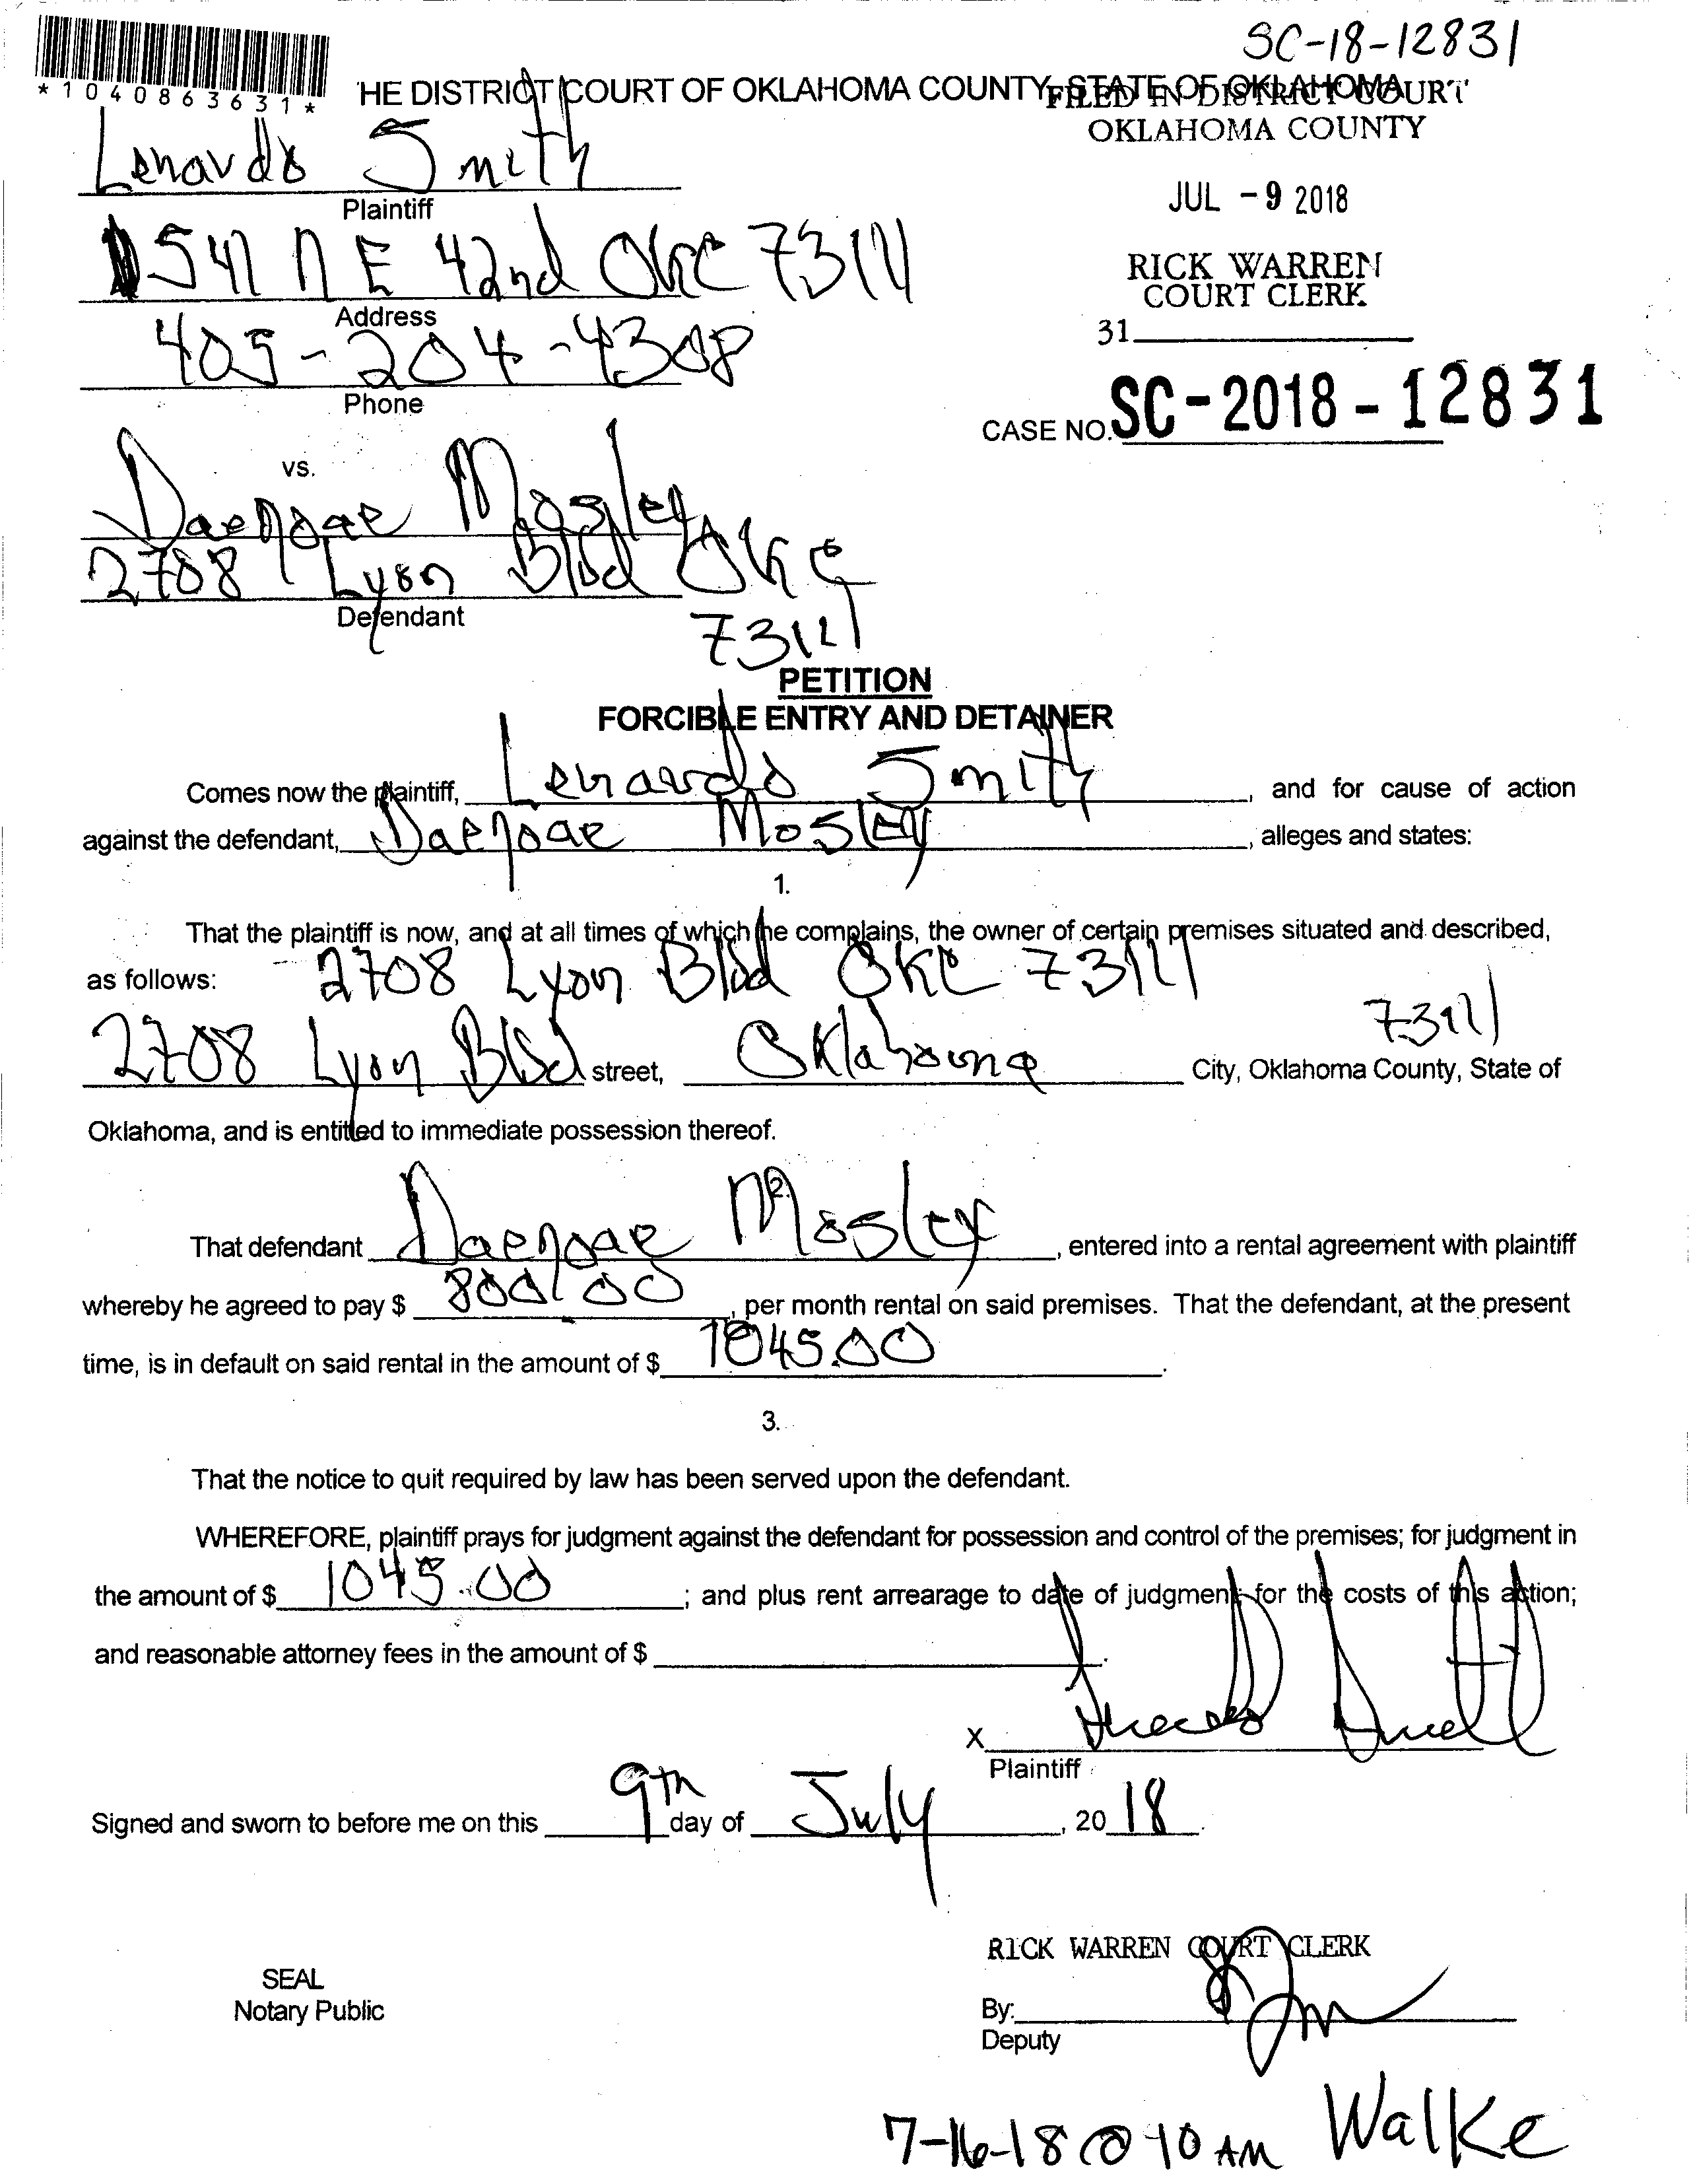 SC-18-12831
*1040863631*
HE DISTRICT COURT OF OKLAHOMA COUNTY, STATE OF OKLAHOMA
FILED IN DISTRICT COURT
OKLAHOMA COUNTY
Lenardo Smith
Plaintiff
JUL - 9 2018
1541 N E 42nd OKC 73111
Address
RICK WARREN
COURT CLERK
405-204-4308
Phone
31
CASE NO. SC-2018-12831
vs.
Mosley
2708 Lyon Blvd OKC
Defendant
73111
PETITION
FORCIBLE ENTRY AND DETAINER
Comes now the plaintiff, Lenardo Smith, and for cause of action
against the defendant, Mosley, alleges and states:
1.
That the plaintiff is now, and at all times of which he complains, the owner of certain premises situated and described,
as follows: 2708 Lyon Blvd OKC 73111
73111
2708 Lyon Blvd street, Oklahoma City, Oklahoma County, State of
Oklahoma, and is entitled to immediate possession thereof.
2.
That defendant Mosley, entered into a rental agreement with plaintiff
whereby he agreed to pay $ 800.00, per month rental on said premises. That the defendant, at the present
time, is in default on said rental in the amount of $ 1045.00.
3.
That the notice to quit required by law has been served upon the defendant.
WHEREFORE, plaintiff prays for judgment against the defendant for possession and control of the premises; for judgment in
the amount of $ 1045.00; and plus rent arrearage to date of judgment; for the costs of this action;
and reasonable attorney fees in the amount of $
X
Plaintiff
Signed and sworn to before me on this 9th day of July, 20 18.
RICK WARREN COURT CLERK
SEAL
Notary Public
By:
Deputy
7-16-18 @ 10 AM Walke